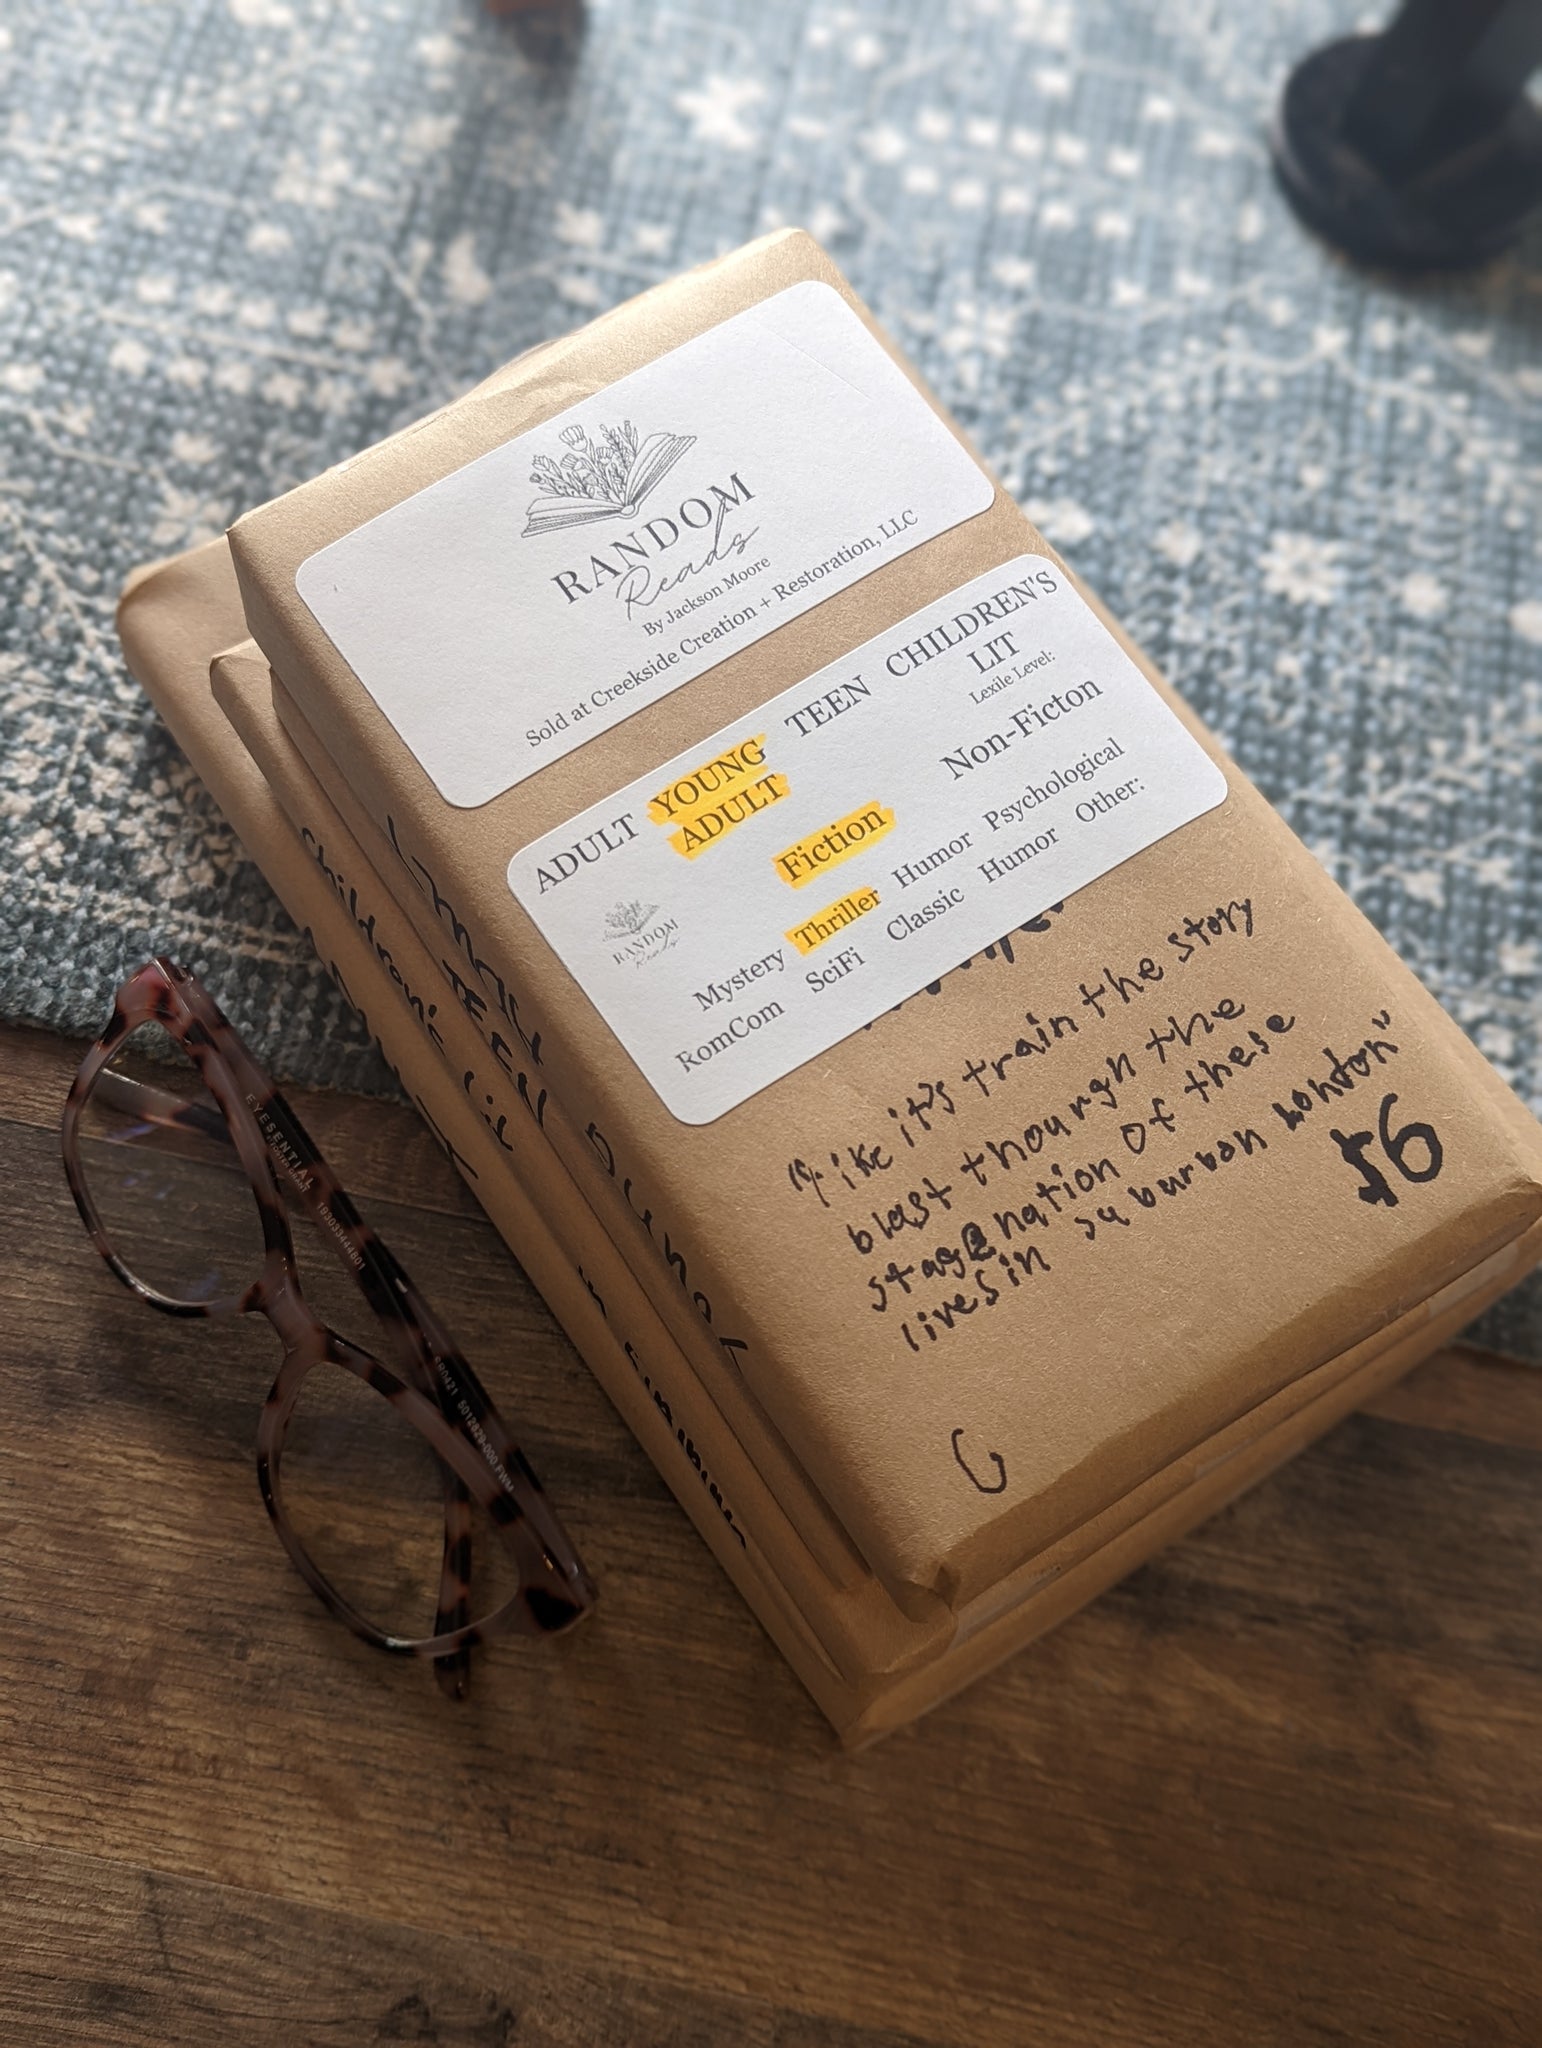 RANDOM
Reads
By Jackson Moore
Sold at Creekside Creation + Restoration, LLC
ADULT YOUNG ADULT TEEN CHILDREN'S LIT
Lexile Level:
Fiction Non-Ficton
Mystery Thriller Humor Psychological
RomCom SciFi Classic Humor Other:
RANDOM
Reads
"like it's train the story
blast thourgh the
stagnation of these
lives in suburban London"
$6
Children's Lit
TEEN
Young
EYESENTIAL
193033444801
5012829-000.FWM